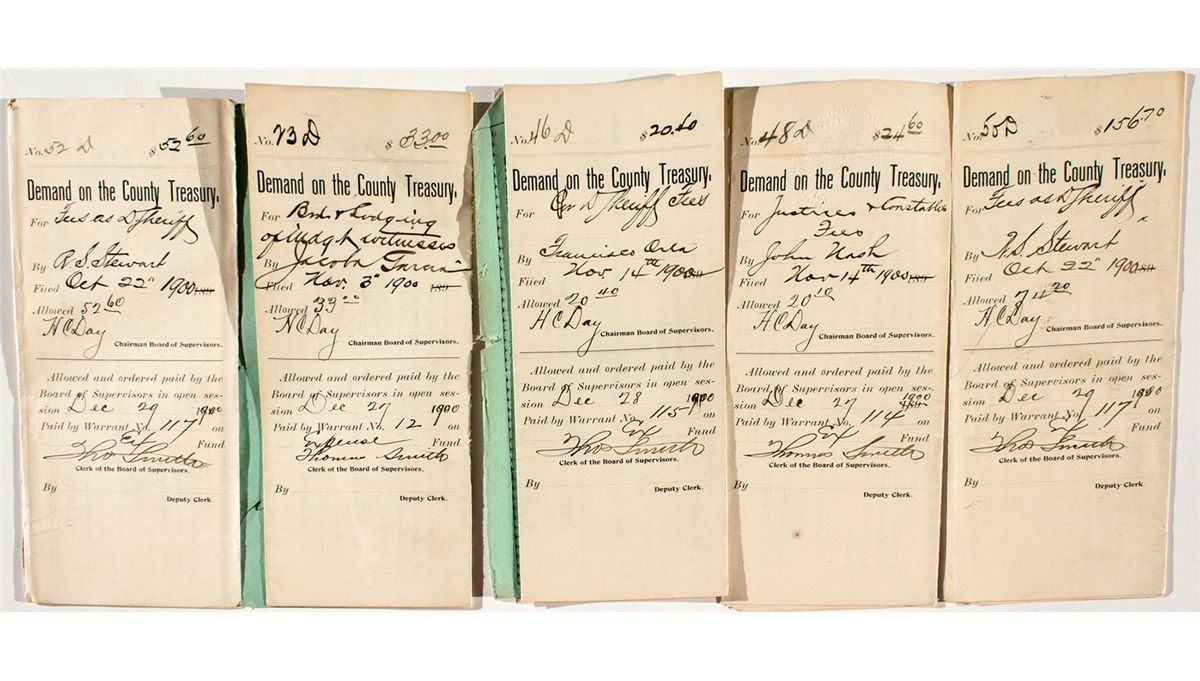 No. 52 D $52 60
Demand on the County Treasury.
For Fees as D Sheriff
By R. S. Stewart
Filed Oct 22" 1900 189
Allowed 52 60
H C Day
Chairman Board of Supervisors.
Allowed and ordered paid by the
Board of Supervisors in open ses-
sion Dec 29 1900
Paid by Warrant No. 117 on
Ex Fund
Thos Smith
Clerk of the Board of Supervisors.
By
Deputy Clerk.
No. 73 D $ 33.00
Demand on the County Treasury.
For Bord & Lodging
of witnesses
By Jacoba
Filed Nov. 3" 1900 189
Allowed 33 00
H C Day
Chairman Board of Supervisors.
Allowed and ordered paid by the
Board of Supervisors in open ses-
sion Dec 27 1900
Paid by Warrant No. 12 on
Expense Fund
Thomas Smith
Clerk of the Board of Supervisors.
By
Deputy Clerk.
No. 46 D $20.40
Demand on the County Treasury.
For D Sheriff Fees
By Francisco
Filed Nov 14th 1900 189
Allowed 20 40
H C Day
Chairman Board of Supervisors.
Allowed and ordered paid by the
Board of Supervisors in open ses-
sion Dec 28 1900
Paid by Warrant No. 115 on
Ex Fund
Thos Smith
Clerk of the Board of Supervisors.
By
Deputy Clerk.
No. 48 D $24 60
Demand on the County Treasury.
For Justices & Constables
Fees
By John Nash
Filed Nov 14th 1900 189
Allowed 20 10
H C Day
Chairman Board of Supervisors.
Allowed and ordered paid by the
Board of Supervisors in open ses-
sion Dec 27 1900 189
Paid by Warrant No. 114 on
Ex Fund
Thomas Smith
Clerk of the Board of Supervisors.
By
Deputy Clerk.
No. 50 D $156.70
Demand on the County Treasury.
For Fees as D Sheriff
By Stewart
Filed Oct 22" 1900 189
Allowed 74 20
H C Day
Chairman Board of Supervisors.
Allowed and ordered paid by the
Board of Supervisors in open ses-
sion Dec 29 1900
Paid by Warrant No. 117 on
Ex Fund
Thos Smith
Clerk of the Board of Supervisors.
By
Deputy Clerk.